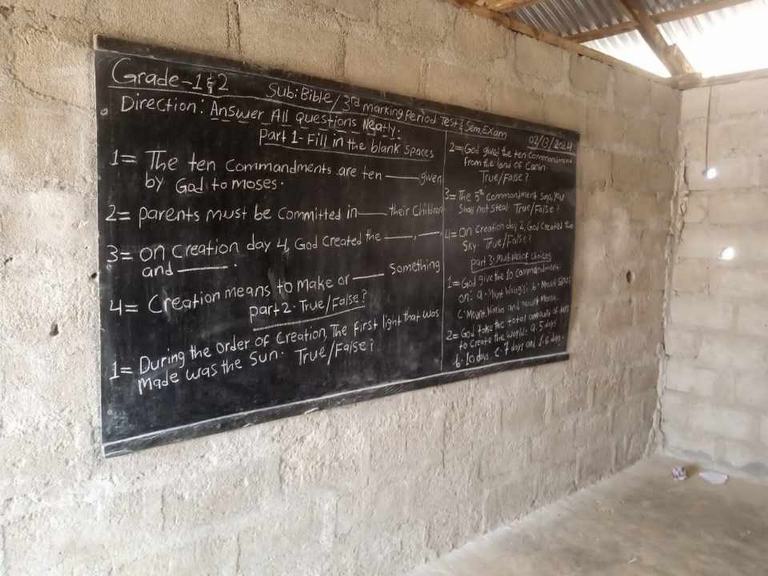 Grade-1&2
Sub: Bible/3rd marking Period Test & Sem, Exam
Direction: Answer All questions Neatly:
Part 1- Fill in the blank Spaces
1= The ten Commandments are ten ____ given
by God to moses.
2= parents must be Committed in ____ their Children
3= on Creation day 4, God Created the ____, ____
and ____.
4= Creation means to make or ____ something
part 2. True/False?
1= During the order of Creation, The first light that was
Made was the Sun. True/False?
2= God gived the ten Commandment
from the land of
True/False?
3= The 5th Commandment Says, You
Shall not Steal. True/False?
4= on Creation day 2, God Created the
Sky. True/False?
part 3. Choices
1= God give the 10 Commandment
on: a. Mount
C. Mount and mount
2= God take the total amount of
to Create the World: a. 5 days
b. 10 days C. 7 days and 6 days.